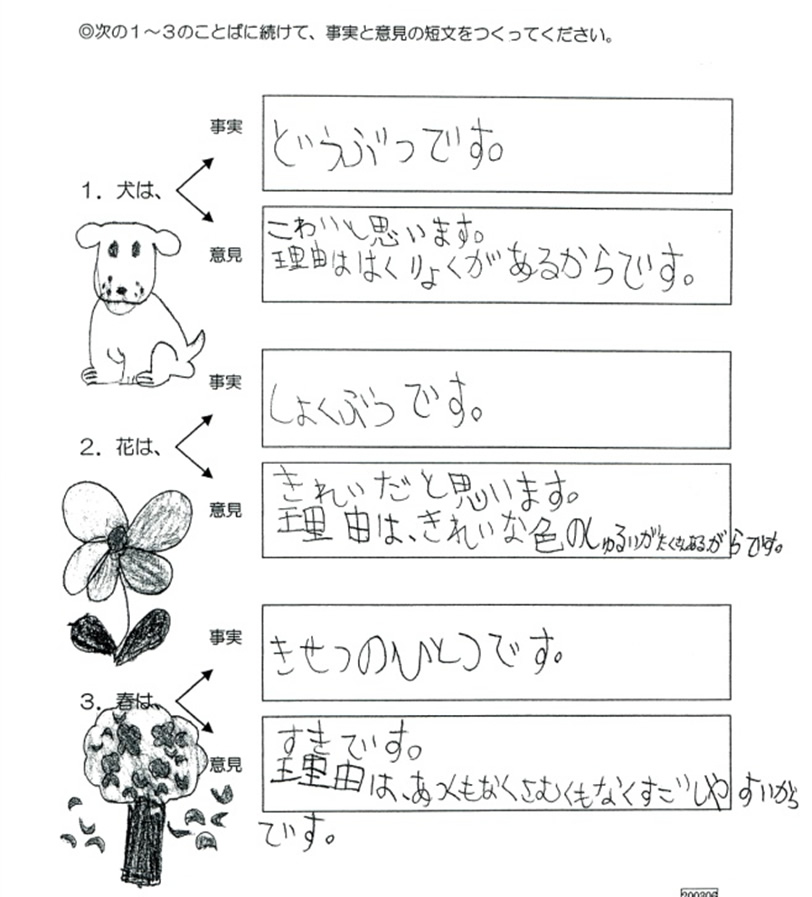 ◎次の1～3のことばに続けて、事実と意見の短文をつくってください。
1. 犬は、
事実
どうぶつです。
意見
こわいと思います。
理由ははくりょくがあるからです。
2. 花は、
事実
しょくぶつです。
意見
きれいだと思います。
理由は、きれいな色のしゅるいがたくさんあるがらです。
3. 春は、
事実
きせつのひとつです。
意見
すきです。
理由は、あつくもなくさむくもなくすごしやすいから
です。